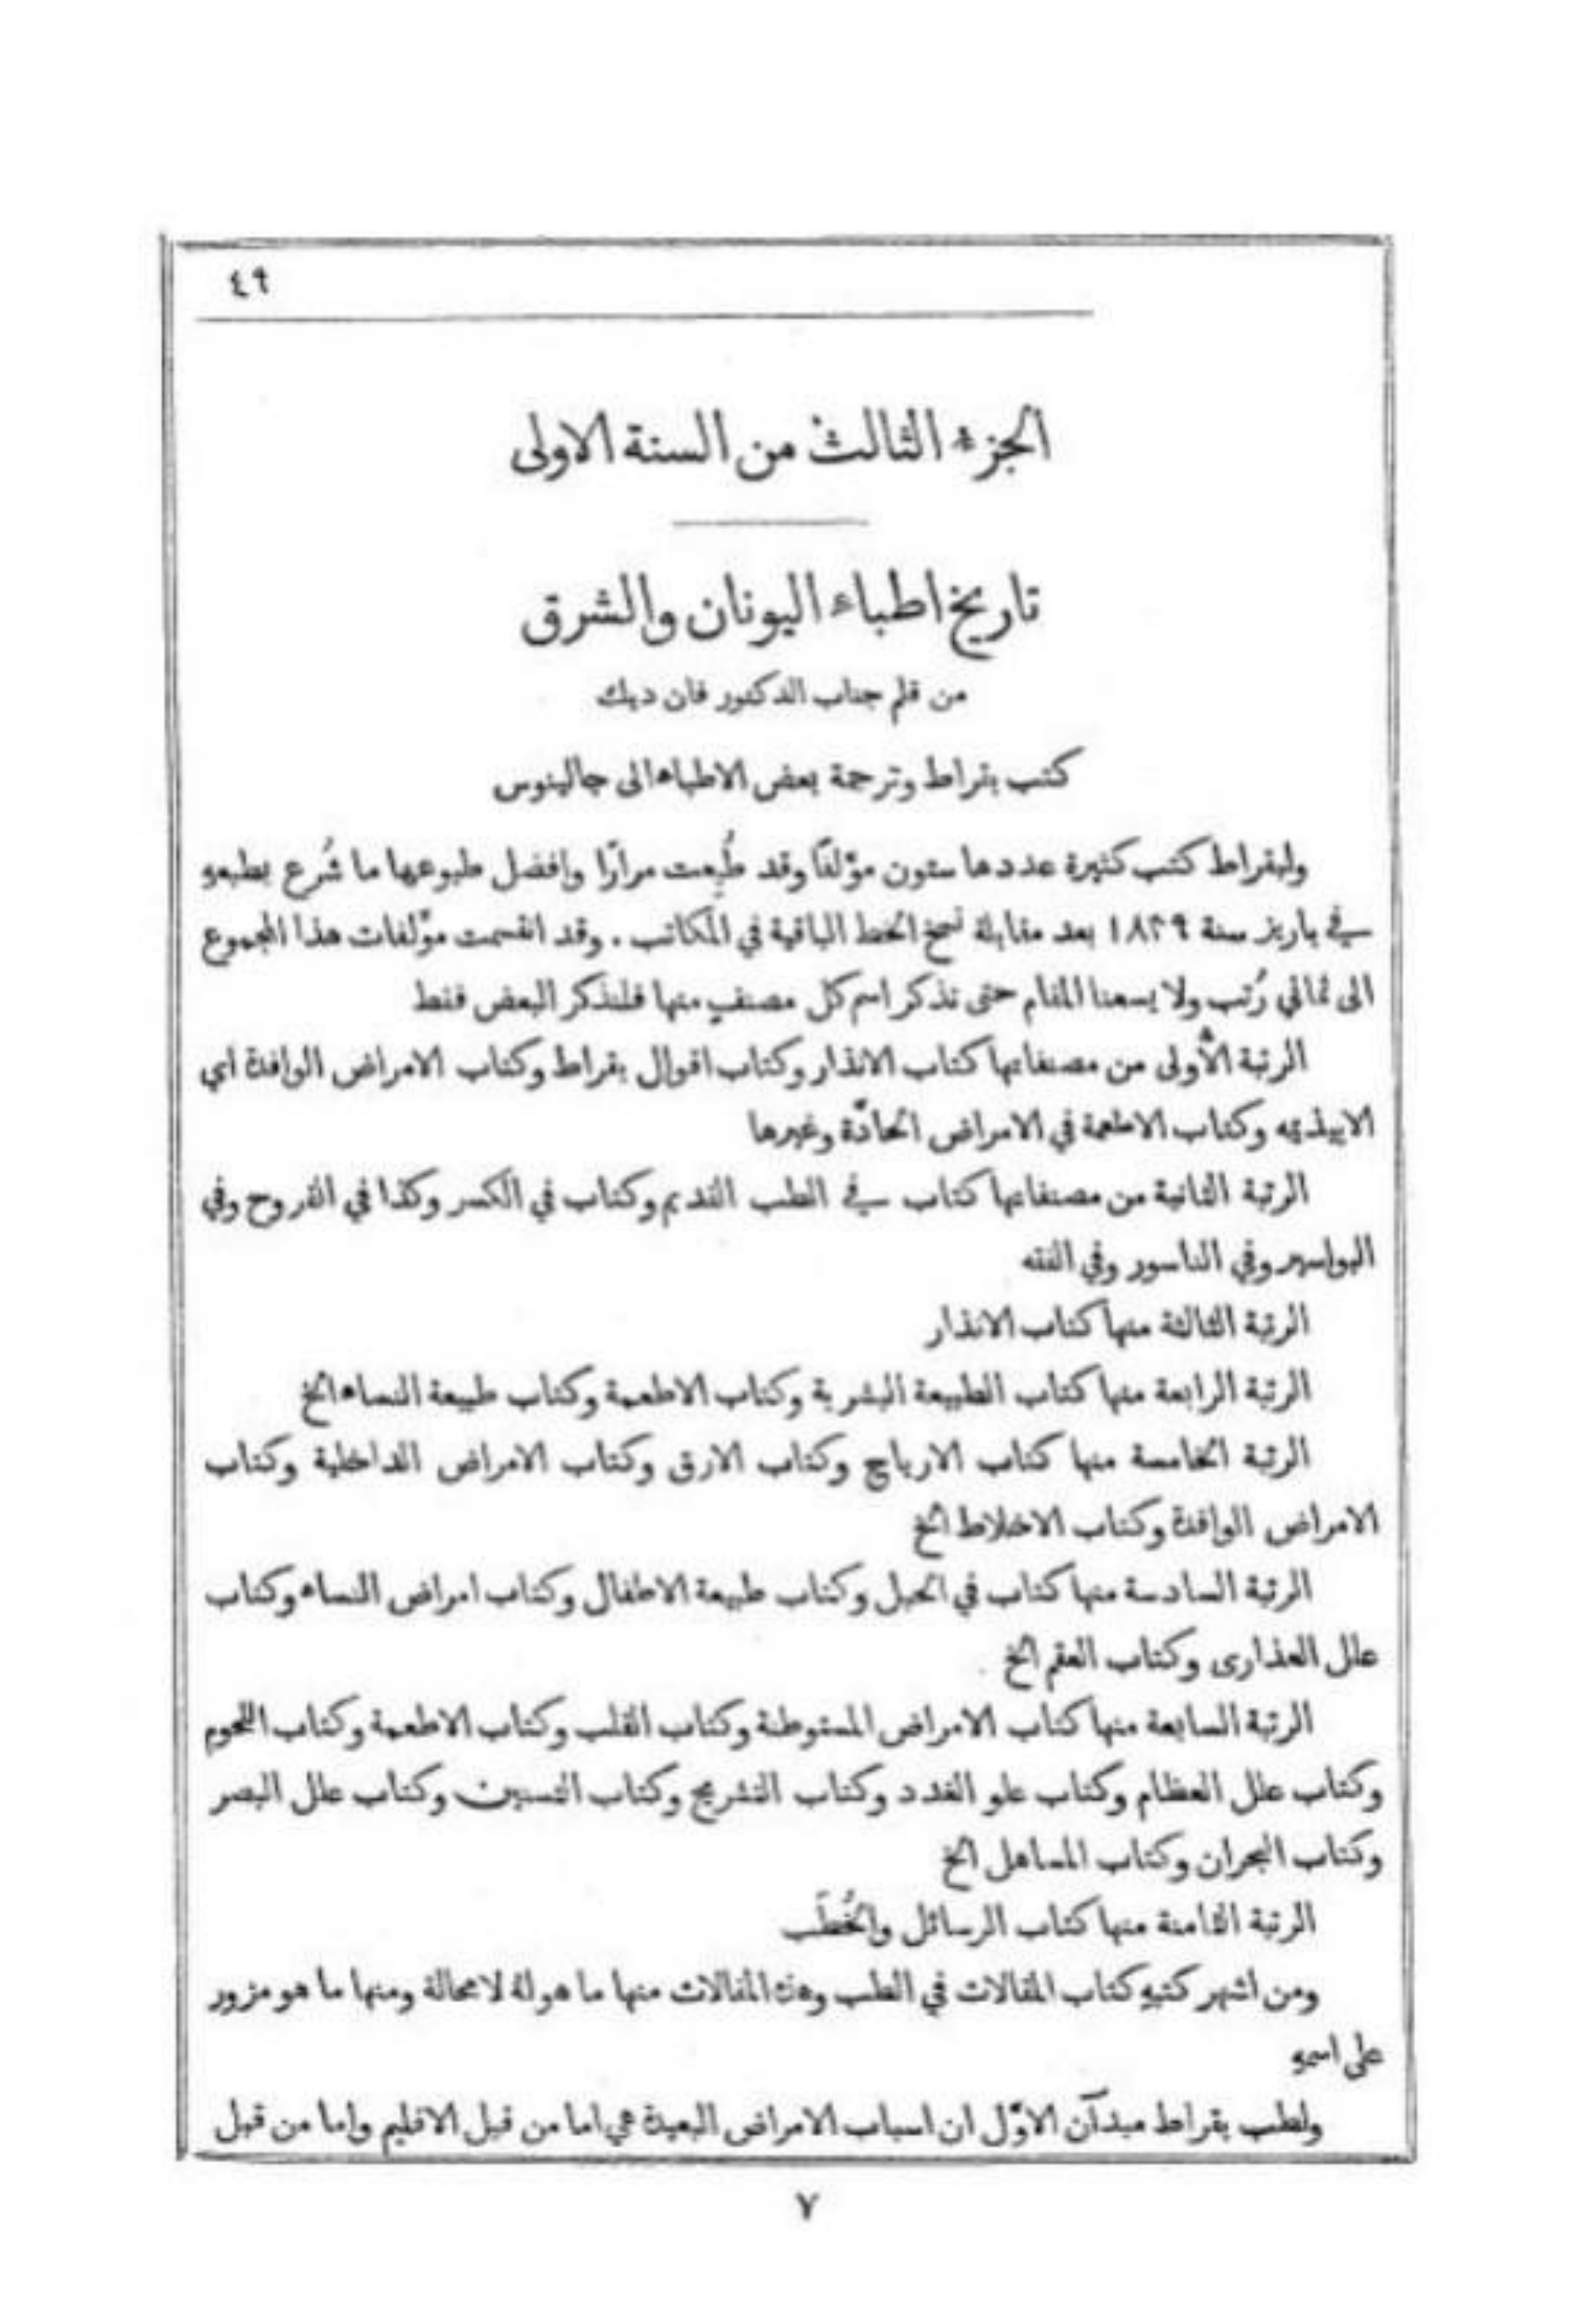 ٤٩
الجزء الثالث من السنة الاولى
تاريخ اطباء اليونان والشرق
من قلم جناب الدكتور فان ديك
كتب بقراط وترجمة بعض الاطباء الى جالينوس
ولبقراط كتب كثيرة عددها ستون مؤلفًا وقد طُبِعت مرارًا وافضل طبوعها ما شُرع بطبعهِ
في باريز سنة ١٨٣٩ بعد مقابلة نسخ الخط الباقية في المكاتب . وقد انقسمت مؤَّلفات هذا المجموع
الى ثماني رُتب ولا يسعنا المقام حتى نذكر اسم كل مصنفٍ منها فلنذكر البعض فقط
الرتبة الأُولى من مصنفاتها كتاب الانذار وكتاب اقوال بقراط وكتاب الامراض الوافدة اي
الابيذميه وكتاب الاطعمة في الامراض الحادَّة وغيرها
الرتبة الثانية من مصنفاتها كتاب في الطب القديم وكتاب في الكسر وكذا في القروح وفي
البواسير وفي الناسور وفي الفقه
الرتبة الثالثة منها كتاب الانذار
الرتبة الرابعة منها كتاب الطبيعة البشرية وكتاب الاطعمة وكتاب طبيعة النساء الخ
الرتبة الخامسة منها كتاب الارياح وكتاب الارق وكتاب الامراض الداخلية وكتاب
الامراض الوافدة وكتاب الاخلاط الخ
الرتبة السادسة منها كتاب في الحبل وكتاب طبيعة الاطفال وكتاب امراض النساء وكتاب
علل العذارى وكتاب العقم الخ
الرتبة السابعة منها كتاب الامراض المستوطنة وكتاب القلب وكتاب الاطعمة وكتاب اللحوم
وكتاب علل العظام وكتاب علو الغدد وكتاب التشريح وكتاب التسنين وكتاب علل البصر
وكتاب البحران وكتاب المساهل الخ
الرتبة الثامنة منها كتاب الرسائل والخُطَب
ومن اشهر كتبهِ كتاب المقالات في الطب وهذه المقالات منها ما هو لهُ لا محالة ومنها ما هو مزور
على اسمهِ
ولطب بقراط مبدآن الاوَّل ان اسباب الامراض البعيدة هي اما من قبل الاقليم واما من قبل
٧